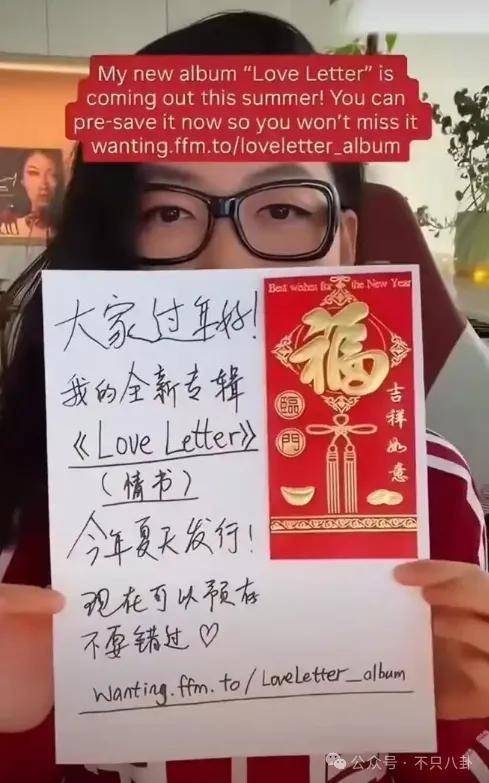 My new album “Love Letter” is
coming out this summer! You can
pre-save it now so you won’t miss it
wanting.ffm.to/loveletter_album
大家过年好!
我的全新专辑
《Love Letter》
(情书)
今年夏天发行!
现在可以预存
不要错过♡
wanting.ffm.to/LoveLetter_album
Best wishes for the New Year
福
臨
門
吉祥如意
公众号·不只八卦